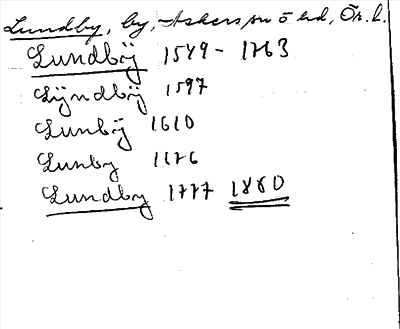 Lundby, by, Askersunds hd, Ör. l.
Lundbÿ 1549 - 1763
Lÿndbÿ 1597
Lunbÿ 1610
Lunby 1676
Lundby 1777 1860